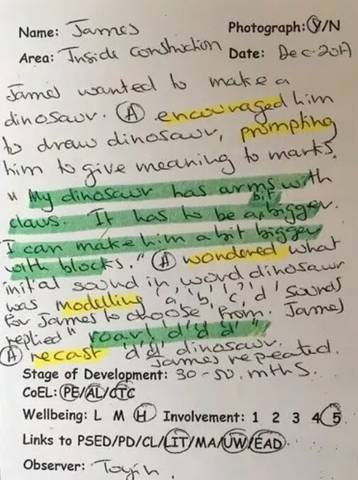 Name: James Photograph: Y/N
Area: Inside construction Date: Dec 2017
James wanted to make a
dinosaur. A encouraged him
to draw dinosaur, prompting
him to give meaning to marks.
"My dinosaur has arms with
claws. It has to be a bit bigger.
I can make him a bit bigger
with blocks." A wondered what
inital sound in word dinosaur
was modelling 'a', 'b', 'c', 'd' sounds
for James to choose from. James
replied "roar! d'd'd'"
A recast d'd' dinosaur.
James repeated.
Stage of Development: 30-50 mths.
CoEL: PE/AL/CTC
Wellbeing: L M H Involvement: 1 2 3 4 5
Links to PSED/PD/CL/LIT/MA/UW/EAD
Observer: Toyin.